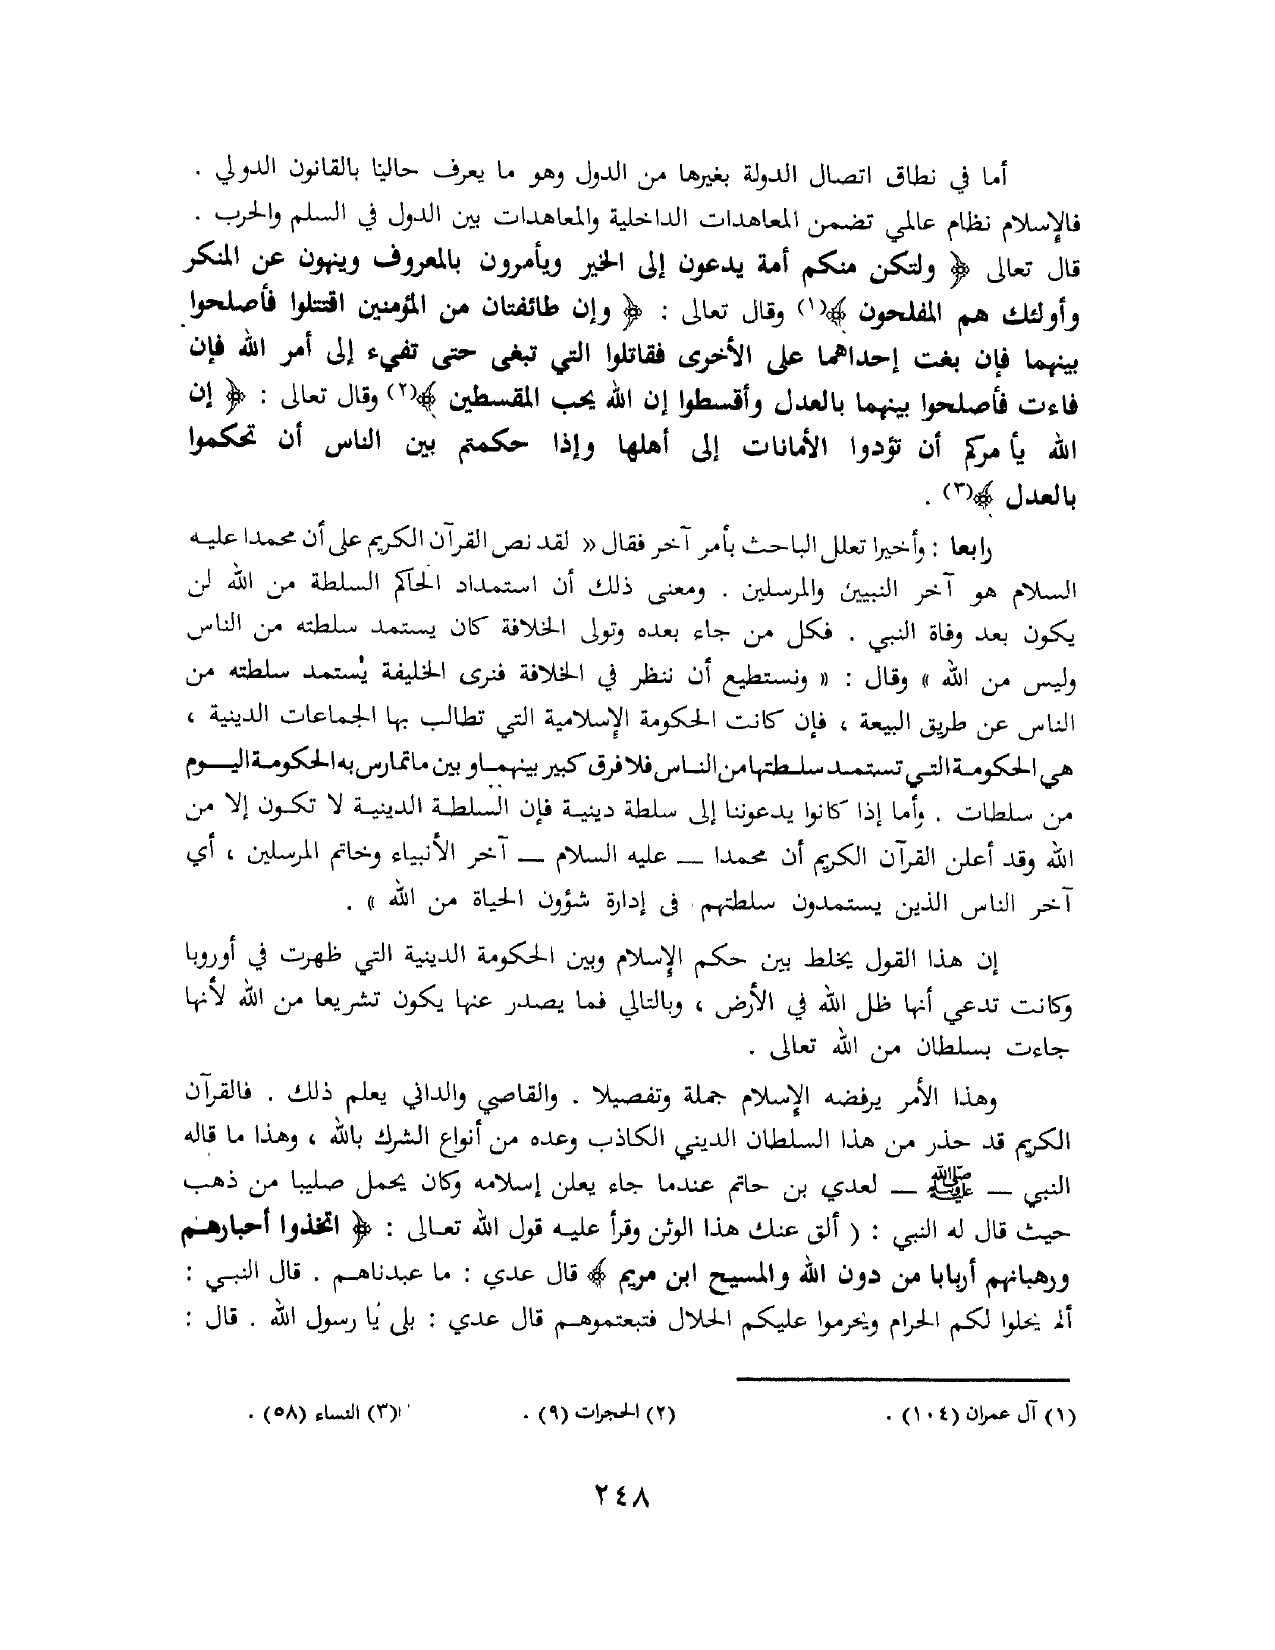 أما في نطاق اتصال الدولة بغيرها من الدول وهو ما يعرف حاليا بالقانون الدولي .
فالإسلام نظام عالمي تضمن المعاهدات الداخلية والمعاهدات بين الدول في السلم والحرب .
قال تعالى ﴿ ولتكن منكم أمة يدعون إلى الخير ويأمرون بالمعروف وينهون عن المنكر
وأولئك هم المفلحون ﴾(١) وقال تعالى : ﴿ وإن طائفتان من المؤمنين اقتتلوا فأصلحوا
بينهما فإن بغت إحداهما على الأخرى فقاتلوا التي تبغى حتى تفيء إلى أمر الله فإن
فاءت فأصلحوا بينهما بالعدل وأقسطوا إن الله يحب المقسطين ﴾(٢) وقال تعالى : ﴿ إن
الله يأمركم أن تؤدوا الأمانات إلى أهلها وإذا حكمتم بين الناس أن تحكموا
بالعدل ﴾(٣) .
رابعا : وأخيرا تعلل الباحث بأمر آخر فقال « لقد نص القرآن الكريم على أن محمدا عليه
السلام هو آخر النبيين والمرسلين . ومعنى ذلك أن استمداد الحاكم السلطة من الله لن
يكون بعد وفاة النبي . فكل من جاء بعده وتولى الخلافة كان يستمد سلطته من الناس
وليس من الله » وقال : « ونستطيع أن ننظر في الخلافة فنرى الخليفة يُستمد سلطته من
الناس عن طريق البيعة ، فإن كانت الحكومة الإسلامية التي تطالب بها الجماعات الدينية ،
هي الحكومة التي تستمد سلطتها من الناس فلا فرق كبير بينهما وبين ما تمارس به الحكومة اليوم
من سلطات . وأما إذا كانوا يدعوننا إلى سلطة دينية فإن السلطة الدينية لا تكون إلا من
الله وقد أعلن القرآن الكريم أن محمدا — عليه السلام — آخر الأنبياء وخاتم المرسلين ، أي
آخر الناس الذين يستمدون سلطتهم في إدارة شؤون الحياة من الله » .
إن هذا القول يخلط بين حكم الإسلام وبين الحكومة الدينية التي ظهرت في أوروبا
وكانت تدعي أنها ظل الله في الأرض ، وبالتالي فما يصدر عنها يكون تشريعا من الله لأنها
جاءت بسلطان من الله تعالى .
وهذا الأمر يرفضه الإسلام جملة وتفصيلا . والقاصي والداني يعلم ذلك . فالقرآن
الكريم قد حذر من هذا السلطان الديني الكاذب وعده من أنواع الشرك بالله ، وهذا ما قاله
النبي — ﷺ — لعدي بن حاتم عندما جاء يعلن إسلامه وكان يحمل صليبا من ذهب
حيث قال له النبي : ( ألق عنك هذا الوثن وقرأ عليه قول الله تعالى : ﴿ اتخذوا أحبارهم
ورهبانهم أربابا من دون الله والمسيح ابن مريم ﴾ قال عدي : ما عبدناهم . قال النبي :
ألم يحلوا لكم الحرام ويحرموا عليكم الحلال فتبعتموهم قال عدي : بلى يا رسول الله . قال :
(١) آل عمران (١٠٤) . (٢) الحجرات (٩) . (٣) النساء (٥٨) .
٢٤٨